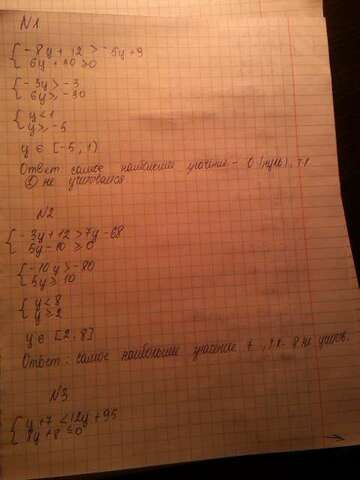 N1
-8y + 12 > -5y + 9
6y + 30 ≥ 0
-3y > -3
6y ≥ -30
y < 1
y ≥ -5
y ∈ [-5, 1)
Ответ: самое наибольшее значение - 0 (нуль), т.к
не учитывался
N2
-3y + 12 > 7y - 68
5y - 10 ≥ 0
-10y > -80
5y ≥ 10
y < 8
y ≥ 2
y ∈ [2, 8]
Ответ: самое наибольшее значение 7, т.к. 8 не учитов.
N3
y + 7 < 12y + 95
8y + 8 ≤ 0